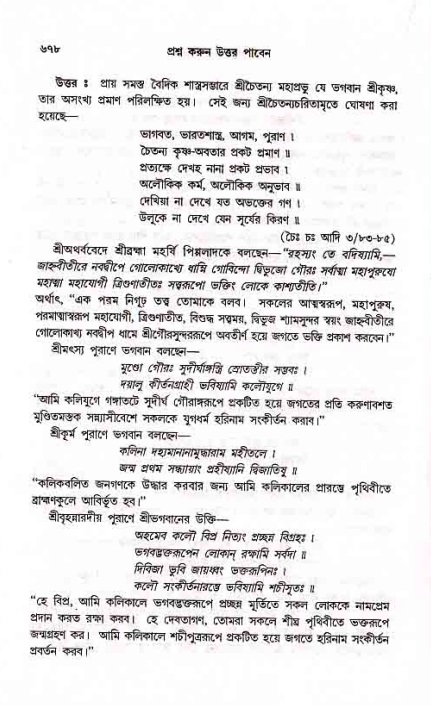 ৬৭৮
প্রশ্ন করুন উত্তর পাবেন
উত্তর : প্রায় সমস্ত বৈদিক শাস্ত্রসম্ভারে শ্রীচৈতন্য মহাপ্রভু যে ভগবান শ্রীকৃষ্ণ,
তার অসংখ্য প্রমাণ পরিলক্ষিত হয়। সেই জন্য শ্রীচৈতন্যচরিতামৃতে ঘোষণা করা
হয়েছে—
ভাগবত, ভারতশাস্ত্র, আগম, পুরাণ ।
চৈতন্য কৃষ্ণ-অবতার প্রকট প্রমাণ ॥
প্রত্যক্ষে দেখহ নানা প্রকট প্রভাব ।
অলৌকিক কর্ম, অলৌকিক অনুভাব ॥
দেখিয়া না দেখে যত অভক্তের গণ ।
উলূকে না দেখে যেন সূর্যের কিরণ ॥
(চৈঃ চঃ আদি ৩/৮৩-৮৫)
শ্রীঅথর্ববেদে শ্রীব্রহ্মা মহর্ষি পিপ্পলাদকে বলছেন—“রহস্যং তে বদিষ্যামি,—
জাহ্নবীতীরে নবদ্বীপে গোলোকাখ্যে ধাম্নি গোবিন্দো দ্বিভুজো গৌরঃ সর্বাত্মা মহাপুরুষো
মহাত্মা মহাযোগী ত্রিগুণাতীতঃ সত্ত্বরূপো ভক্তিং লোকে কাশ্যতীতি।”
অর্থাৎ, “এক পরম নিগূঢ় তত্ত্ব তোমাকে বলব। সকলের আত্মস্বরূপ, মহাপুরুষ,
পরমাত্মাস্বরূপ মহাযোগী, ত্রিগুণাতীত, বিশুদ্ধ সত্ত্বময়, দ্বিভুজ শ্যামসুন্দর স্বয়ং জাহ্নবীতীরে
গোলোকাখ্য নবদ্বীপ ধামে শ্রীগৌরসুন্দররূপে অবতীর্ণ হয়ে জগতে ভক্তি প্রকাশ করবেন।”
শ্রীমৎস্য পুরাণে ভগবান বলছেন—
মুণ্ডো গৌরঃ সুদীর্ঘাঙ্গস্ত্রি স্রোতস্তীর সম্ভবঃ ।
দয়ালু কীর্তনগ্রাহী ভবিষ্যামি কলৌযুগে ॥
“আমি কলিযুগে গঙ্গাতটে সুদীর্ঘ গৌরাঙ্গরূপে প্রকটিত হয়ে জগতের প্রতি করুণাবশত
মুণ্ডিতমস্তক সন্ন্যাসীবেশে সকলকে যুগধর্ম হরিনাম সংকীর্তন করাব।”
শ্রীকূর্ম পুরাণে ভগবান বলছেন—
কলিনা দহ্যমানানামুদ্ধারায় মহীতলে ।
জন্ম প্রথম সন্ধ্যায়াং প্রহীষ্যানি দ্বিজাতিষু ॥
“কলিকবলিত জনগণকে উদ্ধার করবার জন্য আমি কলিকালের প্রারম্ভে পৃথিবীতে
ব্রাহ্মণকুলে আবির্ভূত হব।”
শ্রীবৃহন্নারদীয় পুরাণে শ্রীভগবানের উক্তি—
অহমেব কলৌ বিপ্র নিত্যং প্রচ্ছন্ন বিগ্রহঃ ।
ভগবদ্ভক্তরূপেন লোকান্ রক্ষামি সর্বদা ॥
দিবিজা ভুবি জায়ধ্বং ভক্তরূপিনঃ ।
কলৌ সংকীর্তনারম্ভে ভবিষ্যামি শচীসূতঃ ॥
“হে বিপ্র, আমি কলিকালে ভগবদ্ভক্তরূপে প্রচ্ছন্ন মূর্তিতে সকল লোককে নামপ্রেম
প্রদান করত রক্ষা করব। হে দেবতাগণ, তোমরা সকলে শীঘ্র পৃথিবীতে ভক্তরূপে
জন্মগ্রহণ কর। আমি কলিকালে শচীপুত্ররূপে প্রকটিত হয়ে জগতে হরিনাম সংকীর্তন
প্রবর্তন করব।”